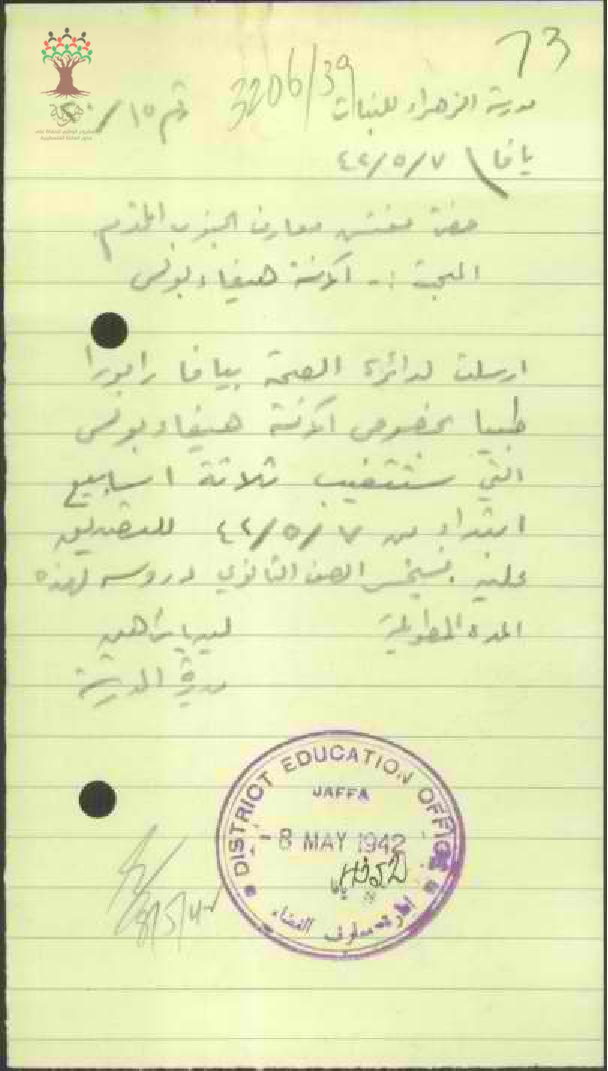 73
3206/39
مدرسة الزهراء للبنات رقم ١٥/
يافا ٤٢/٥/٧
حضرة مفتش معارف الجنوب المحترم
المبحث :- الآنسة هيفاء يونس
ارسلت لدائرة الصحة بيافا رابورا
طبيا بخصوص الآنسة هيفاء يونس
التي ستتغيب ثلاثة اسابيع
ابتداء من ٤٢/٥/٧ للتصديق
عليه فسيخسر الصف الثانوي دروسه لهذه
المده الطويلة
مديرة المدرسة
DISTRICT EDUCATION OFFICE
JAFFA
- 8 MAY 1942
1452
يافا
ادارة معارف القضاء
8/5/42